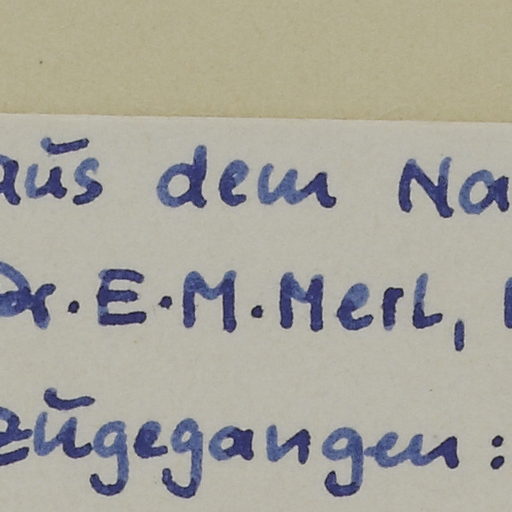 aus dem Na
Dr. E. M. Merl,
zugegangen: